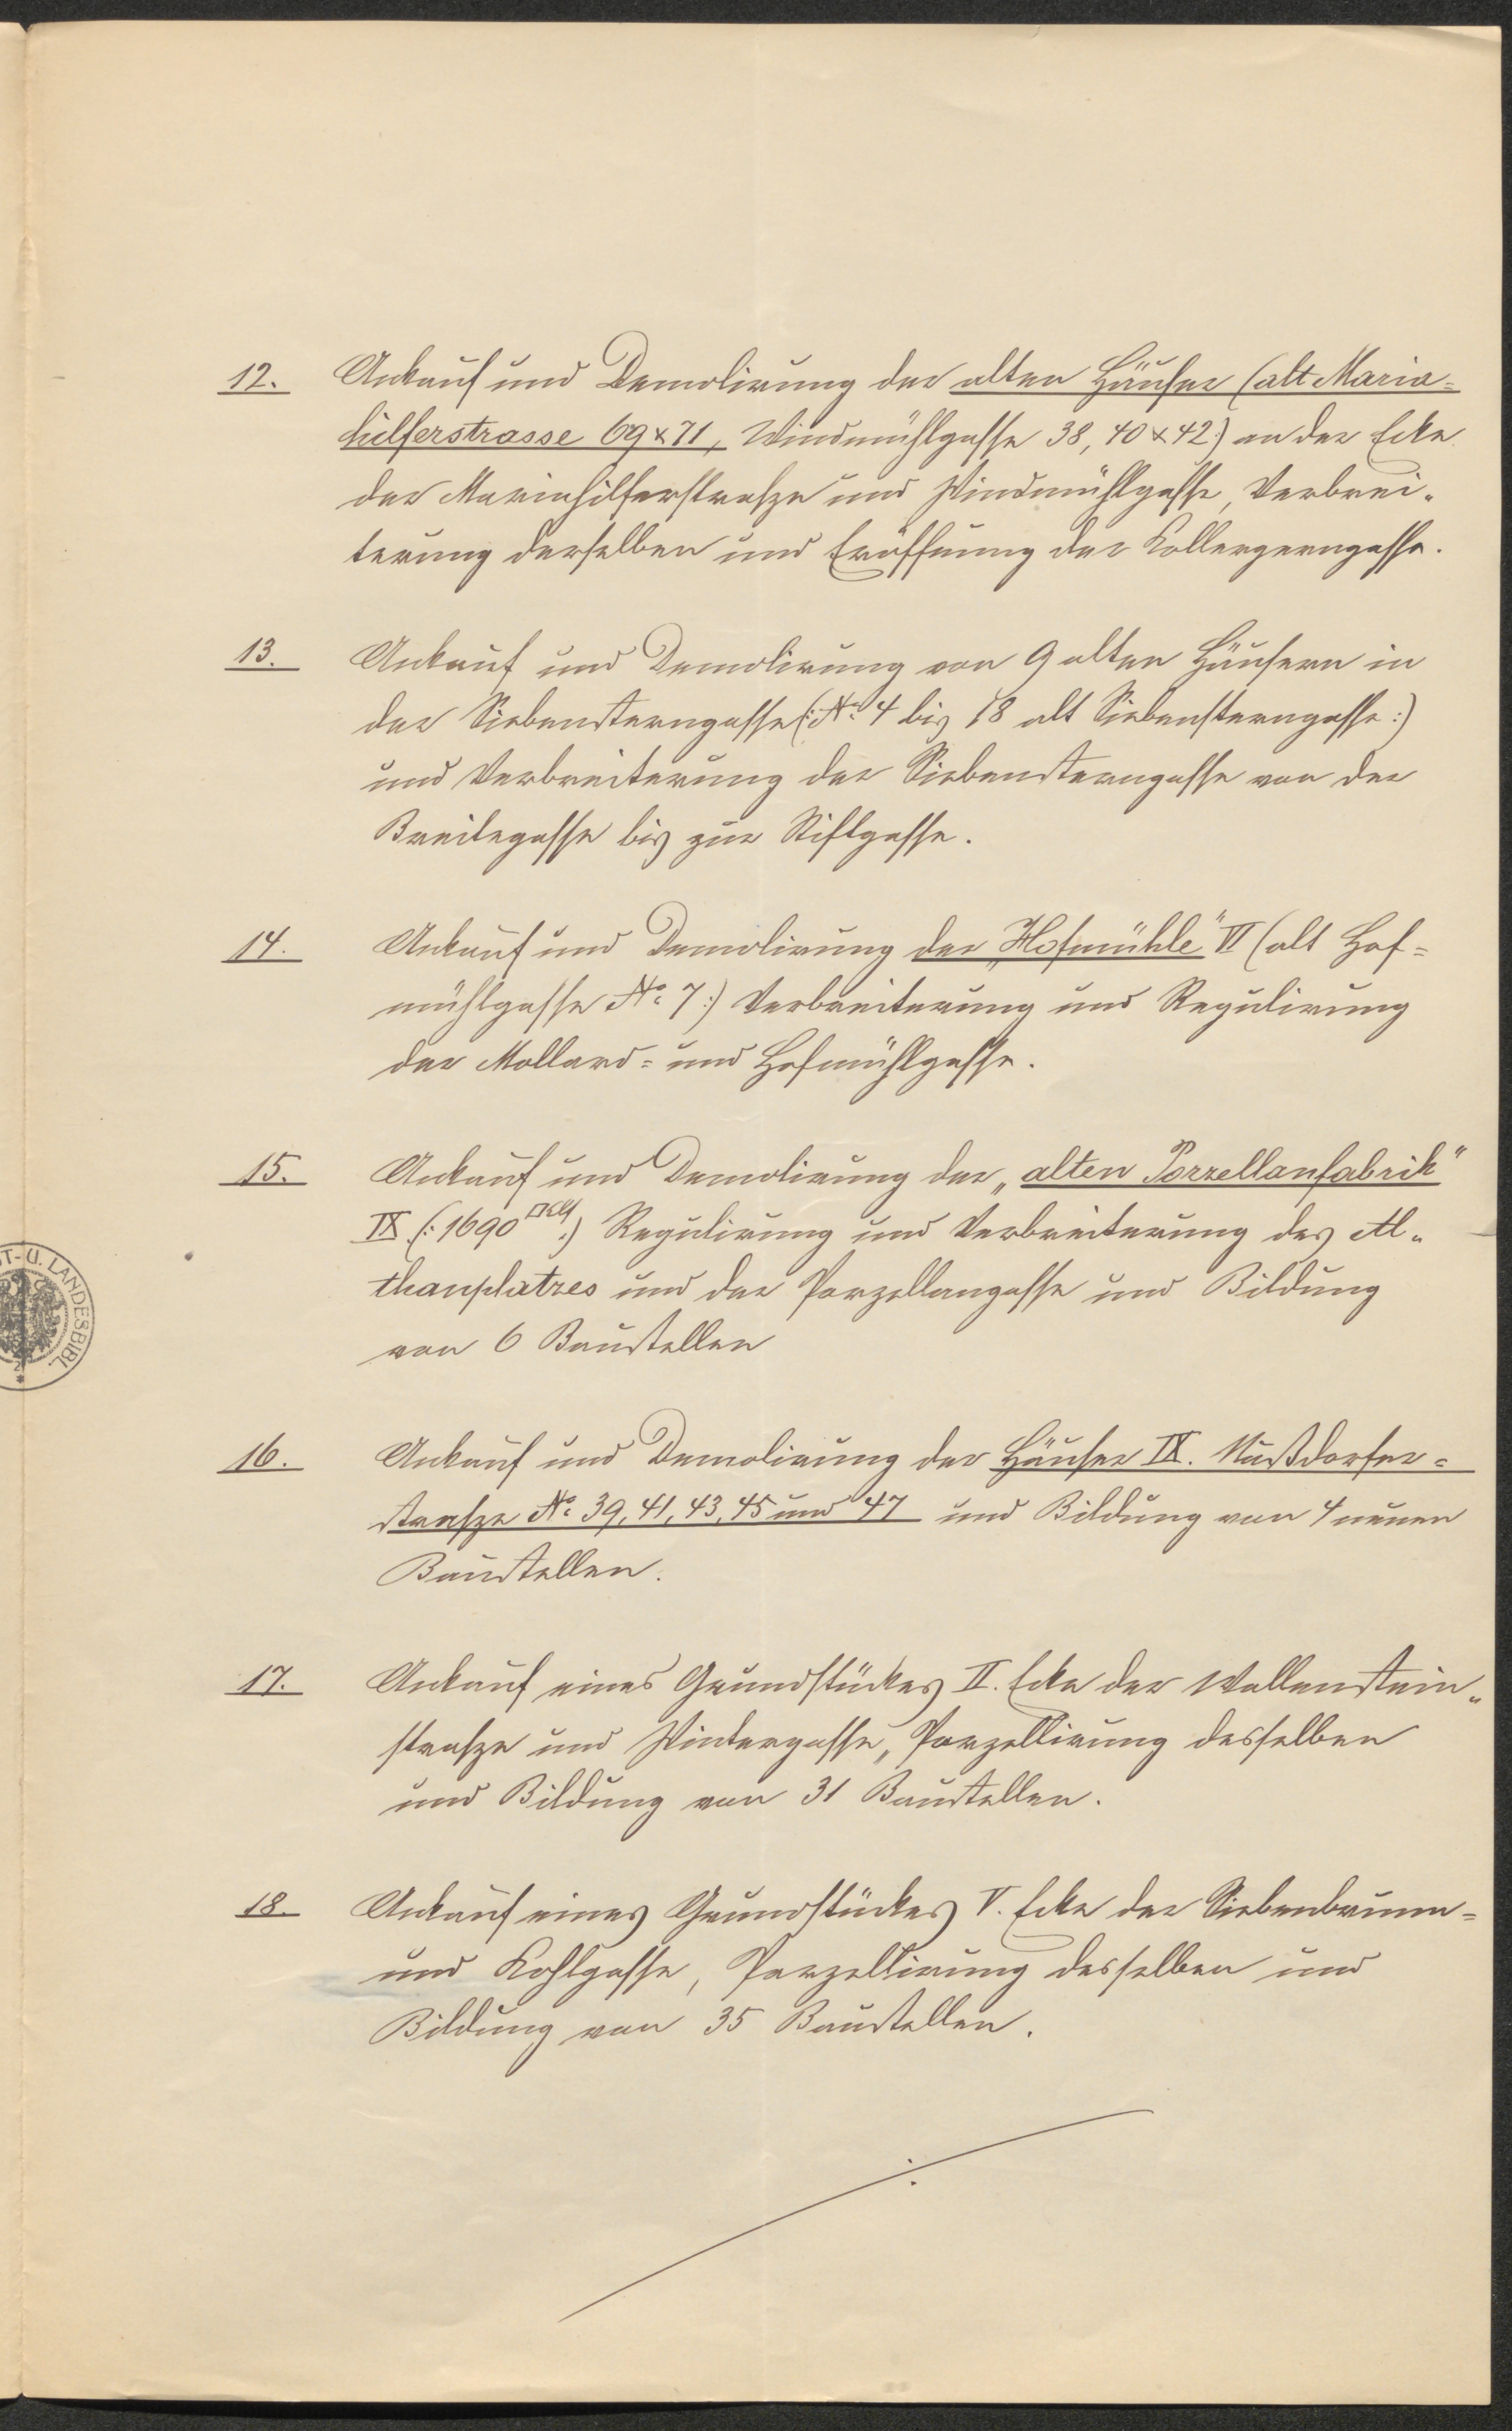 12. Ankauf und Demolirung der alten Häuser (alt Maria=
hilferstrasse 69 & 71, Windmühlgasse 38, 40 & 42:) an der Ecke
der Mariahilferstrasze und Windmühlgasse, Verbrei„
terung derselben und Eröffnung der Kollergerngasse.
13. Ankauf und Demolirung von 9 alten Häusern in
der Siebensterngasse (: No 4 bis 18 alt Siebensterngasse :)
und Verbreiterung der Siebensterngasse von der
Breitegasse bis zur Stiftgasse.
14. Ankauf und Demolirung der „Hofmühle“ VI (alt Hof=
mühlgasse No 7:) Verbreiterung und Regulirung
der Mollard= und Hofmühlgasse.
15. Ankauf und Demolirung der „alten Porzellanfabrik“
IX (: 1690 □Klf :) Regulirung und Verbreiterung des Al„
thanplatzes und der Porzellangasse und Bildung
von 6 Baustellen
16. Ankauf und Demolirung der Häuser IX. Nußdorfer=
strasze No 39, 41, 43, 45 und 47 und Bildung von 4 neuen
Baustellen.
17. Ankauf eines Grundstückes II. Ecke der Wallenstein„
strasze und Wintergasse, Parzellirung desselben
und Bildung von 31 Baustellen.
18. Ankauf eines Grundstückes V. Ecke der Siebenbrunn=
und Kohlgasse, Parzellirung desselben und
Bildung von 35 Baustellen.
T- U. LANDESBIBL.